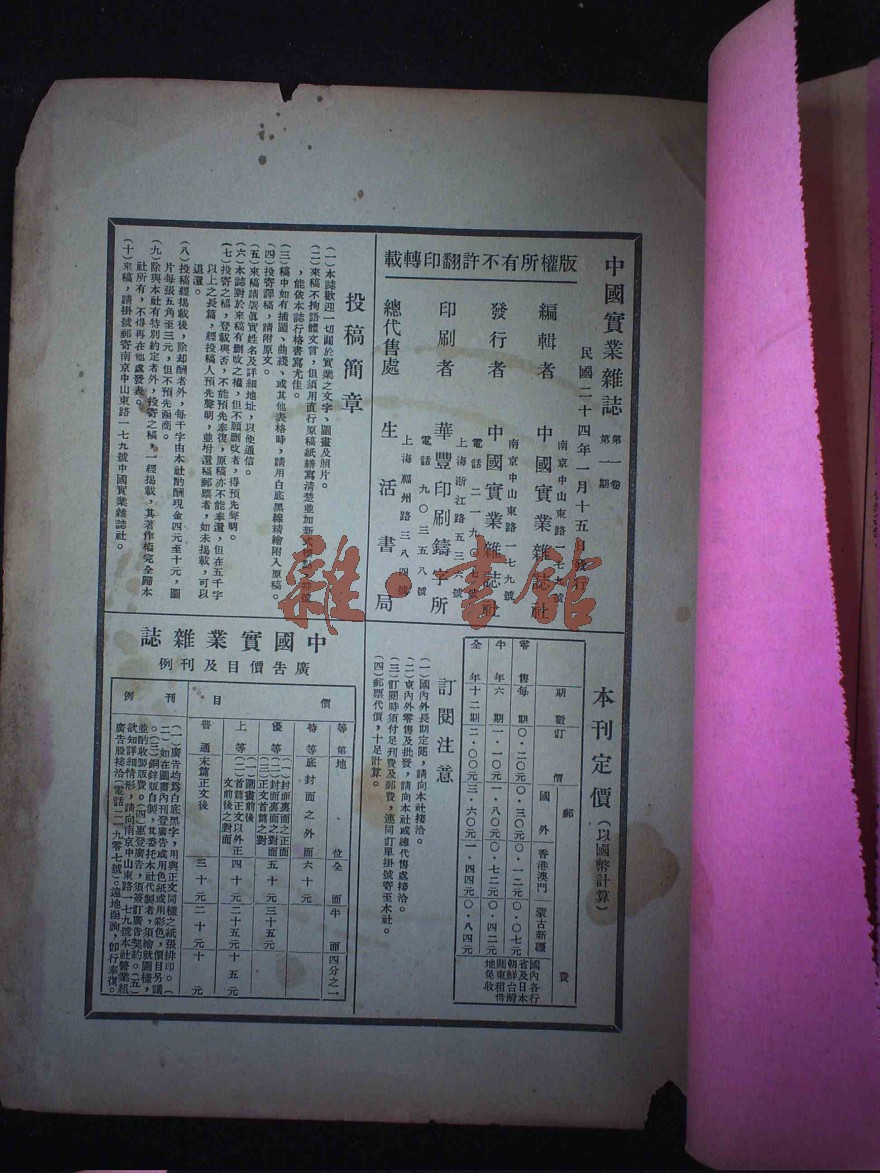 中國實業雜誌 第一卷 第一期
民國二十四年一月十五日發行
版權所有不許翻印轉載
編輯者 中國實業雜誌社
南京中山東路一七九號
發行者 中國實業雜誌社
南京中山東路一七九號
電話二一九〇七號
印刷者 華豐印刷鑄字所
上海浙江路五三六號
電話九〇三五八號
總代售處 生活書局
上海福州路三八四號
投稿簡章
(一)本誌歡迎一切關於實業之文字、圖畫及照片。
(二)來稿不拘語體文言,但須用直行原稿紙繕寫清楚並加新式標點符號
,能依本誌行格書寫尤佳。
(三)稿中如有插圖、曲綫、或其他表格時,請用白底黑線精繪附入原稿。
(四)投寄譯稿,請附原文。
(五)來稿請署眞實姓名及詳細地址,以便通信。
(六)本誌對於來稿有刪改之權,但不願刪改者,得預先聲明。
(七)投寄之稿,登載與否,不能預先奉復,原稿亦不能奉還,但在五千字
以上之長篇,經投稿人預先聲明,並坿還稿郵票者,如未揭載,可以
退還。
(八)投稿經揭載後,除却酬者外,每千字由本社酌酬現金四元至十元,圖
片每張五角至三元,但不預先函商。
(九)除與本社有特別約定者外,投寄之稿,一經揭載,其著作權完全歸本
社所有,不得再在他處發表。
(十)來稿,請掛號郵寄南京中山東路一七九號中國實業雜誌社。
本刊定價(以國幣計算)
期數 訂價 郵費
國外 香港澳門 蒙古新疆 國內各行省及日本朝鮮台灣關東租借地免收
零售每期 〇・二〇元 〇・三〇元 〇・一二元 〇・〇七元
半年六期 一・一〇元 一・八〇元 〇・七二元 〇・四二元
全年十二期 二・〇〇元 三・六〇元 一・四四元 〇・八四元
訂閱注意
(一)國內外長期定閱,請向本社接洽。
(二)京內外零售及批發,請向本社或總代售處接洽。
(三)訂閱時須付足刊費及郵費,連同訂單掛號寄至本社。
(四)郵票代價,十足計算。
中國實業雜誌
廣告價目及刊例
價目
等第 地位 全面 半面 四分之一
特等 底封面之外面 六十元
優等 (一)封面裏面之正面 (二)封面裏面之對面 (三)正文首篇之對 五十元 三十五元
上等 (一)圖畫前後 (二)首篇正文以外正文前後之對面 四十元 二十五元 十五元
普通 末篇正文後 三十元 二十元 十元
刊例
(一)廣告均爲白底黑字,用與正文同樣之紙張排印。(
二)如在圖書內刊登廣告或用色紙或用彩色,價目另議
。(三)銅鋅版自製,其委托本社代製者,須繪就圖樣,
並酌收製版費。(四)惠登廣告,須簽訂廣告契約。(五)
欲知詳細情形,請向南京中山東路一七九號本社營業組
廣告股接洽(電話二一九零七號)。遠地函詢,卽行奉復。
雜・書館